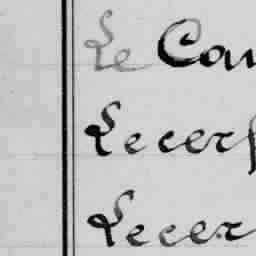 Le Cou
Lecerf
Lecer